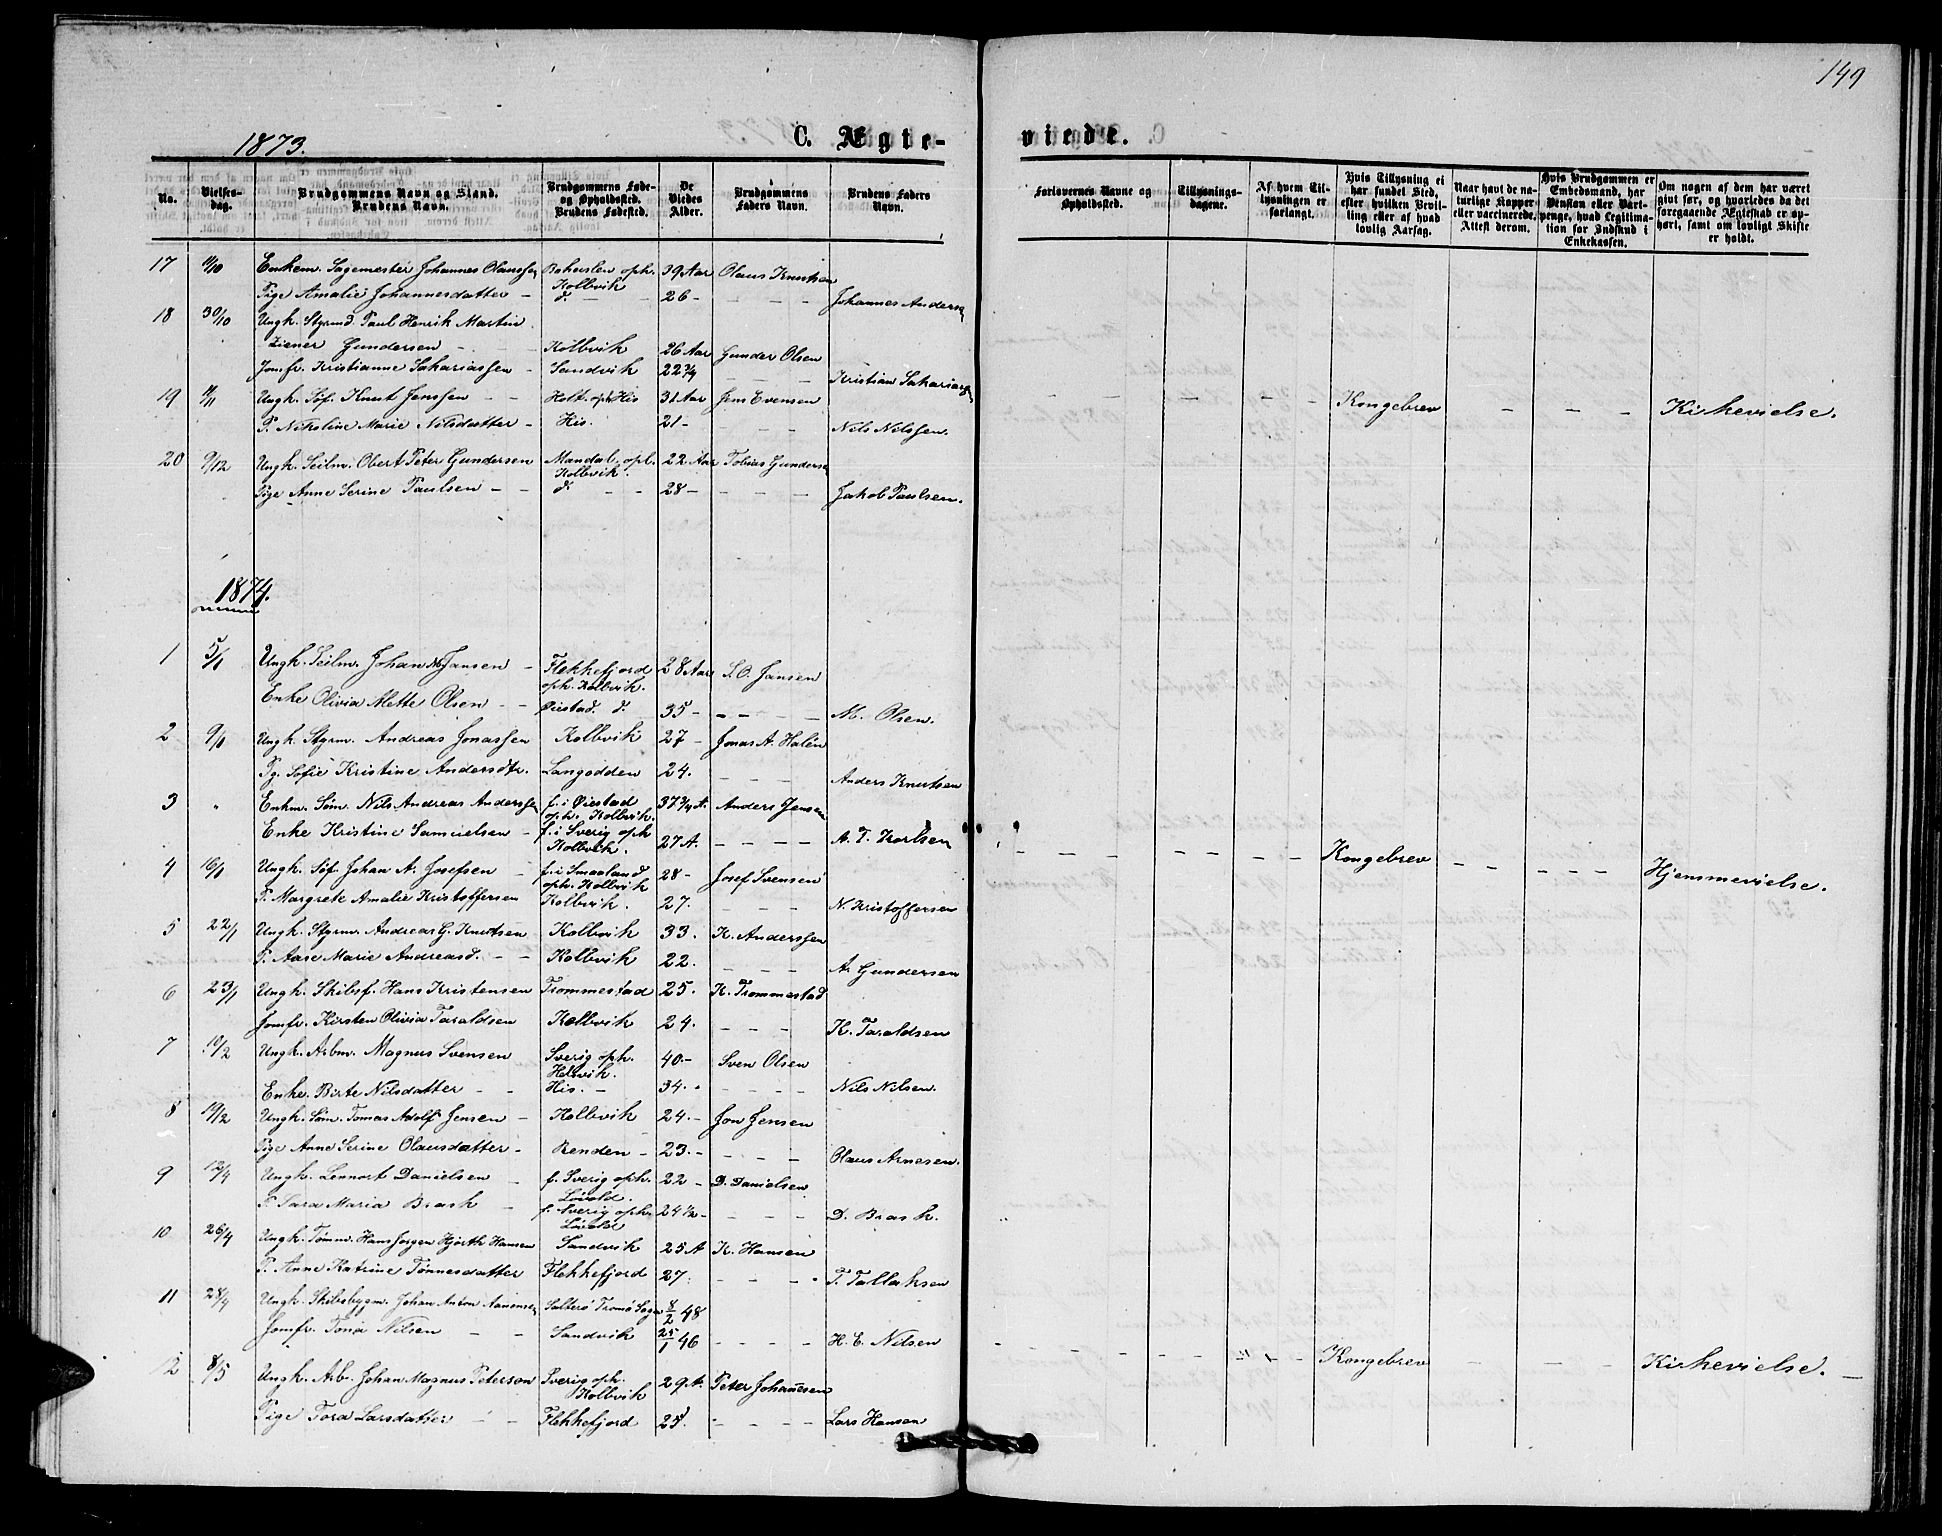 149
1873.
C. Ægte-
viede.
No.
Vielses-
dag.
Brudgommens Navn og Stand.
Brudens Navn.
Brudgommens Føde-
og Opholdssted.
Brudens Fødested.
De
Viedes
Alder.
Brudgommens
Faders Navn.
Brudens Faders
Navn.
Forlovernes Navne og
Opholdssted.
Tillysnings-
dagene.
Af hvem Til-
lysningen er
forlangt.
Hvis Tillysning ei
har fundet Sted,
efter hvilken Bevil-
ling eller af hvad
lovlig Aarsag.
Naar havt de na-
turlige Kopper
eller vaccinerede.
Attest derom.
Hvis Brudgommen er
Embedsmand, har
Pension eller Vart-
penge, hvad Legitima-
tion for Indskud i
Enkekassen.
Om nogen af dem har været
givt før, og hvorledes da det
foregaaende Ægteskab er op-
hørt, samt om lovligt Skifte
er holdt.
17 11/10 Enkem. Sagemester Johannes Olaussen Bohuslen oph. 39 Aar Olaus Knutsen
Kolbvik
Pige Amalie Johannesdatter - d - - 26 - - - - Johannes Andersen
18 30/10 Ungk. Styrmd. Paul Henrik Martin
Ziener Gundersen - Kolbvik 26 Aar Gunder Olsen
Jomfr. Kristianne Sakariassen - Sandvik 22 3/4 - - - Kristian Sakariassen
19 /11 Ungk. Søf. Knut Jenssen - - Holt. oph His 31 Aar Jens Evensen - - - - Kongebrev - - - Kirkevielse.
P. Nikoline Marie Nilsdatter - His. 21 - - - - Nils Nilssen.
20 9/12 Ungk. Seilm. Obert Peter Gundersen Mandal. oph. 22 Aar Tobias Gunders
Kolbvik.
Pige Anne Serine Paulsen - - d. - - 28 - - - - Jakob Paulsen.
1874.
1 5/1 Ungk. Seilm. Johan M Jansen - Flekkefjord 28 Aar S. O. Jansen
oph. Kolbvik.
Enke Olivia Mette Olsen - - Øiestad. d. 35 - - - - M. Olsen.
2 9/1 Ungk. Styrm. Andreas Jonassen Kolbvik 27 - Jonas A. Halén
Pg. Sofie Kristine Andersdtr. Langodden 24. - - - Anders Knutsen
3 " Enkm. Søm. Nils Andreas Anderssen f. i Øiestad 37 3/4 A. Anders Jensen
oph. Kolbvik.
Enke Kristine Samuelsen - f. i Sverig oph 27 A. - - - - A. T. Karlsen
Kolbvik.
4 16/1 Ungk. Søf. Johan A. Josefsen - f. i Smaaland 28 - Josef Svensen - - - - - - - Kongebrev - - - - - Hjemmevielse.
oph. Kolbvik
P. Margrete Amalie Kristoffersen Kolbvik. 27. - - - N. Kristoffersen
5 22/1 Ungk. Styrm. Andreas G. Knutsen - Kolbvik 33. K. Anderssen
P. Aase Marie Andreasd. - - Kolbvik 22. - - - A. Gundersen
6 23/1 Ungk. Skibsf. Hans Kristensen Trommestad 25. K. Trommestad
Jomfr. Kirsten Olivia Taraldsen Kolbvik 24. - - - K. Taraldsen
7 10/2 Ungk. Arbm. Magnus Svensen Sverig oph. 40 - Sven Olsen
Kolbvik.
Enke. Birte Nilsdatter - - His. - 34. - Nils Nilsen.
8 19/2 Ungk. Søm. Tomas Adolf Jensen - Kolbvik 24. - Jon Jensen
Pige Anne Serine Olausdatter - Renden - 23. - - - - Olaus Arnesen.
9 12/4 Ungk. Lennart Danielsen - f. Sverig oph. 22 - D. Danielsen
Løvold.
P. Sara Maria Brask - f. Sverig oph. 24 1/2 - - - - D. Brask.
Løvold
10 26/4 Ungk. Tømm. Hans Jørgen Hjorth Hansen Sandvik 25 A K. Hansen
P. Anne Katrine Tønnesdatter Flekkefjord 27. - - - T. Tallaksen
11 28/4 Ungk. Skibsbygm. Johan Anton Aanensen Salterø Tromø Sogn 8/2 48
Jomfr. Tonia Nilsen - - Sandvik 25/1 46 - - - - H. E. Nilsen - - - - - - - - Kongebrev - - - Kirkevielse. -
12 8/5 Ungk. Arb. Johan Magnus Peterson Sverig oph. 29 A. Peter Johannesen
Kolbvik
Pige Tora Larsdatter - - Flekkefjord 25. - - - Lars Hansen